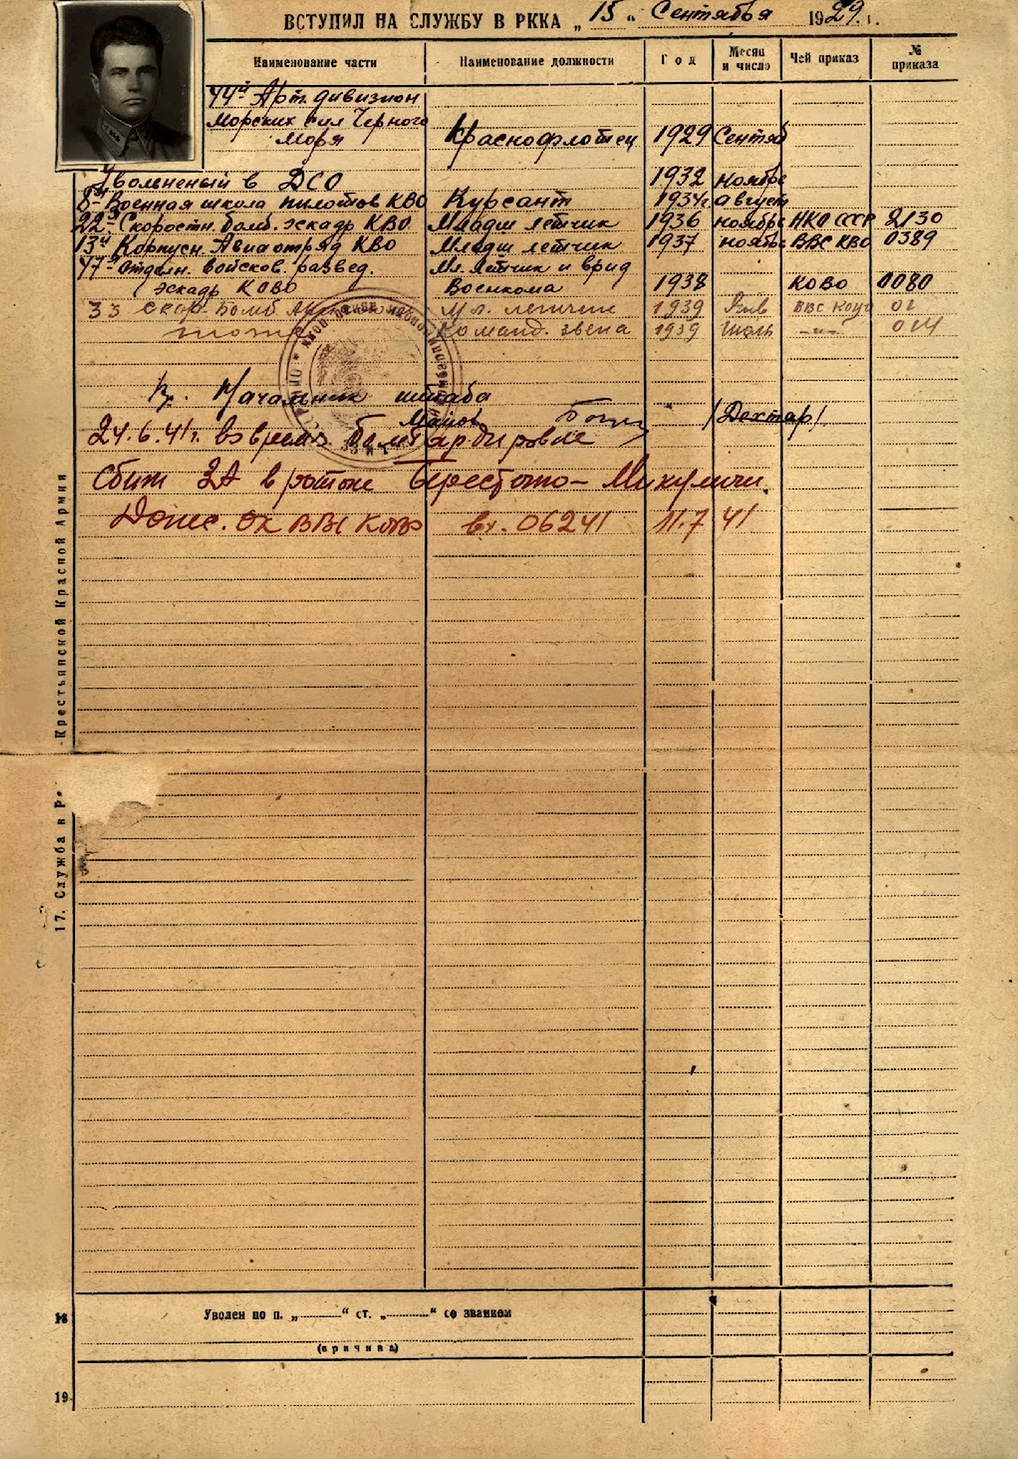 ВСТУПИЛ НА СЛУЖБУ В РККА „ 15 “ Сентября 1929 г.
Наименование части Наименование должности Год Месяц и число Чей приказ № приказа
44й Арт. дивизион
Морских сил Черного
Моря Краснофлотец 1929 Сентяб
Уволненый в ДСО 1932 ноябре
8й Военная школа пилотов КВО Курсант 1934г. август
22й Скоростн. бомб. эскадр КВО Младш летчик 1936 ноябрь НКО СССР 2130
13й Корпусн. Авиаотряд КВО Младш летчик 1937 ноябр ВВС КВО 0389
47я отдельн. войсков. развед. Мл. летчик и врид
эскадр КОВО Военкома 1938 КОВО 0080
33 Скор. Бомб Мл. летчик 1939 Янв ВВС КОВО 02
тоже Команд. звена 1939 Июль -"- 014
Вр. Начальник штаба
Майор /Дехтяр/
24.6.41г. во время бомбардировке
Сбит ЗА в районе Берестечко - Микуличи.
Донес. ОК ВВС КОВО вх. 06241 11.7.41
17. Служба в Р
-Крестьянской Красной Армии
18 Уволен по п. „ “ ст. „ “ со званием
(причина)
19.